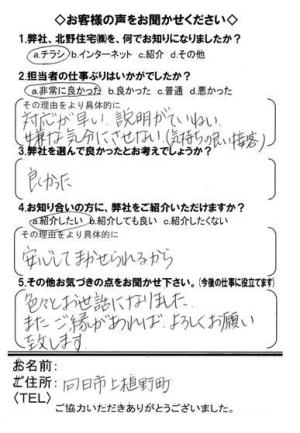 ◇お客様の声をお聞かせください◇
1.弊社、北野住宅㈱を、何でお知りになりましたか？
a.チラシ b.インターネット c.紹介 d.その他
2.担当者の仕事ぶりはいかがでしたか？
a.非常に良かった b.良かった c.普通 d.悪かった
その理由をより具体的に
対応が早い。説明がていねい。
嫌な気分にさせない(気持ちの良い接客)
3.弊社を選んで良かったとお考えでしょうか？
良かった
4.お知り合いの方に、弊社をご紹介いただけますか？
a.紹介したい b.紹介しても良い c.紹介したくない
その理由をより具体的に
安心してまかせられるから
5.その他お気づきの点をお聞かせ下さい。(今後の仕事に役立てます)
色々とお世話になりました。
またご縁があれば、よろしくお願い
致します。
お名前：
ご住所：向日市上植野町
〈TEL〉
ご協力いただきありがとうございました。